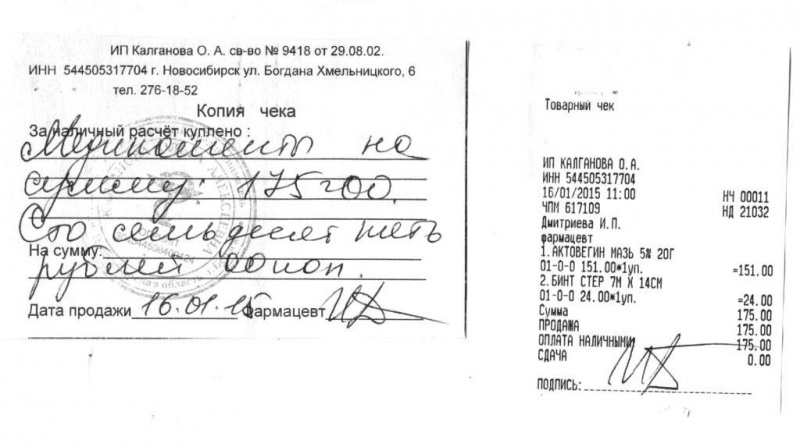 ИП Калганова О. А. св-во № 9418 от 29.08.02.
ИНН 544505317704 г. Новосибирск ул. Богдана Хмельницкого, 6
тел. 276-18-52
Копия чека
За наличный расчёт куплено :
Медикаменты на
сумму: 175=00.
Сто семьдесят пять
На сумму:
рублей 00 коп.
Дата продажи 16.01.15 фармацевт
Товарный чек
ИП КАЛГАНОВА О.А.
ИНН 544505317704
16/01/2015 11:00 НЧ 00011
ЧПМ 617109 НД 21032
Дмитриева И.П.
фармацевт
1.АКТОВЕГИН МАЗЬ 5% 20Г
01-0-0 151.00*1уп. =151.00
2.БИНТ СТЕР 7М Х 14СМ
01-0-0 24.00*1уп. =24.00
Сумма 175.00
ПРОДАЖА 175.00
ОПЛАТА НАЛИЧНЫМИ 175.00
СДАЧА 0.00
ПОДПИСЬ: